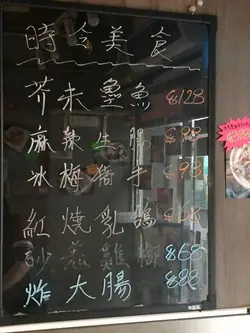 時令美食
芥末墨魚 $128
麻辣生腸 $98
冰梅豬手 $98
紅燒乳鴿 $98
砂薑雞腳 $68
炸大腸 $88